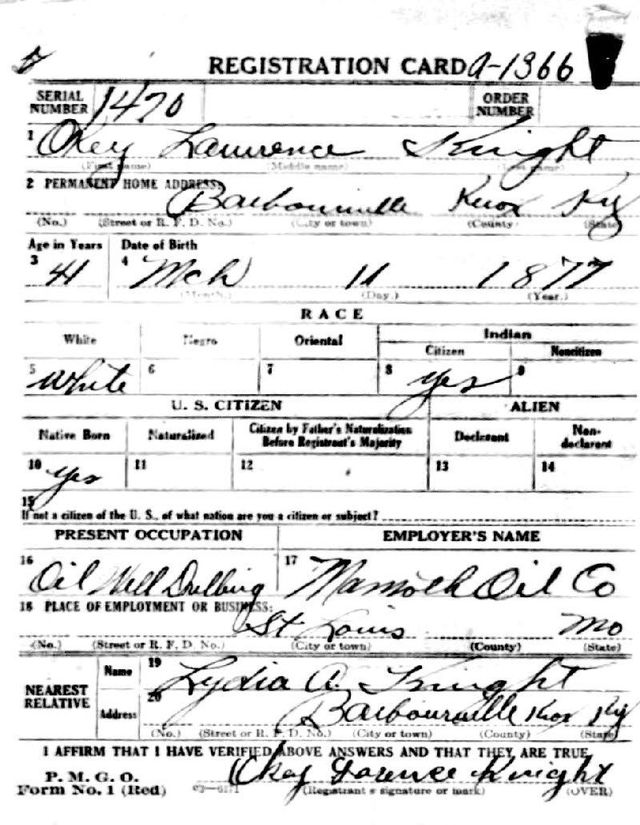 REGISTRATION CARD A-1366
SERIAL NUMBER 1470 ORDER NUMBER
1 Okey Lawrence Knight
(First name) (Middle name) (Last name)
2 PERMANENT HOME ADDRESS:
Barbourville Knox Ky
(No.) (Street or R. F. D. No.) (City or town) (County) (State)
Age in Years Date of Birth
3 41 4 Mch 11 1877
(Month.) (Day.) (Year.)
RACE
White Negro Oriental Indian
Citizen Noncitizen
5 White 6 7 8 yes 9
U. S. CITIZEN ALIEN
Native Born Naturalized Citizen by Father's Naturalization Before Registrant's Majority Declarant Non-declarant
10 yes 11 12 13 14
15
If not a citizen of the U. S., of what nation are you a citizen or subject?
PRESENT OCCUPATION EMPLOYER'S NAME
16 Oil Well Drilling 17 Mamoth Oil Co
18 PLACE OF EMPLOYMENT OR BUSINESS:
St Louis Mo
(No.) (Street or R. F. D. No.) (City or town) (County) (State)
NEAREST RELATIVE Name 19 Lydia A. Knight
Address 20 Barbourville Knox Ky
(No.) (Street or R. F. D. No.) (City or town) (County) (State)
I AFFIRM THAT I HAVE VERIFIED ABOVE ANSWERS AND THAT THEY ARE TRUE
P. M. G. O.
Form No. 1 (Red) Okey Lorence Knight
(Registrant's signature or mark) (OVER)